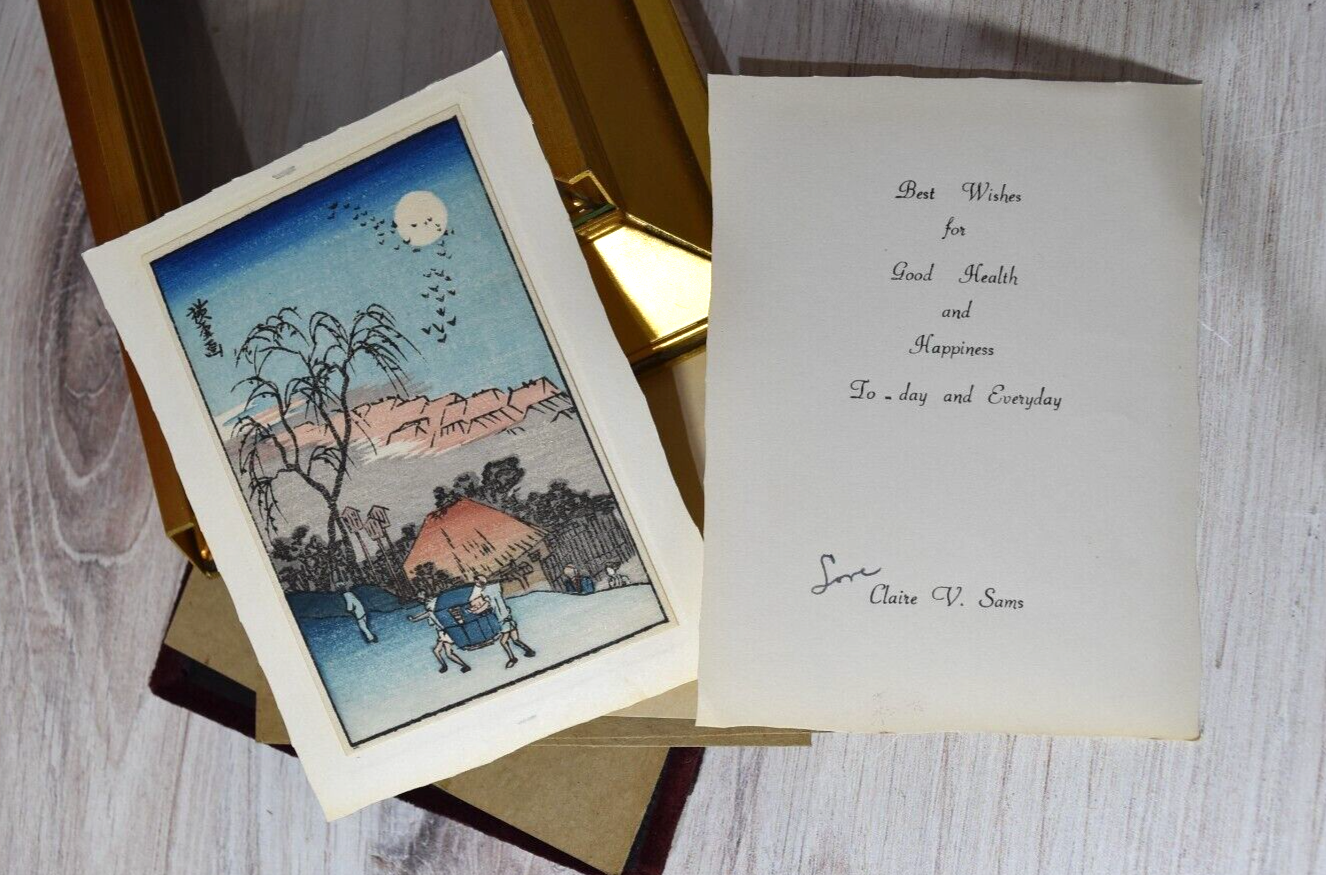 廣重画
Best Wishes
for
Good Health
and
Happiness
To-day and Everyday
Love
Claire V. Sams